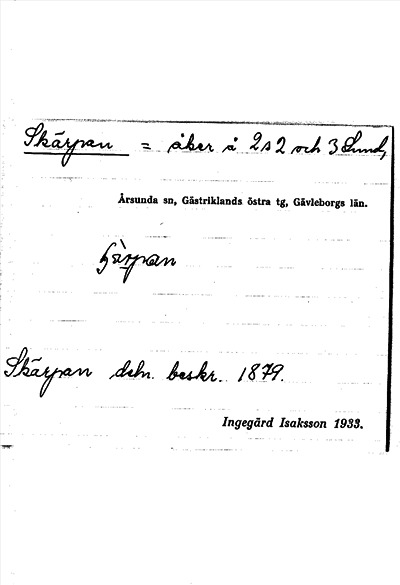 Skärpan = åker å 2s2 och 3 Sund,
Årsunda sn, Gästriklands östra tg, Gävleborgs län.
Skärpan dsbn. beskr. 1879.
Ingegärd Isaksson 1933.